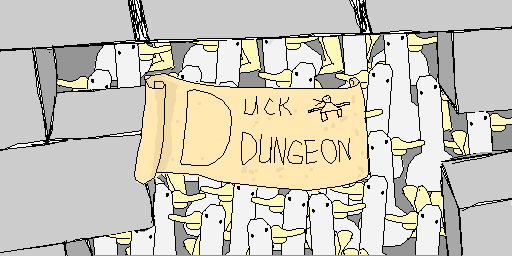 DUCK
DUNGEON